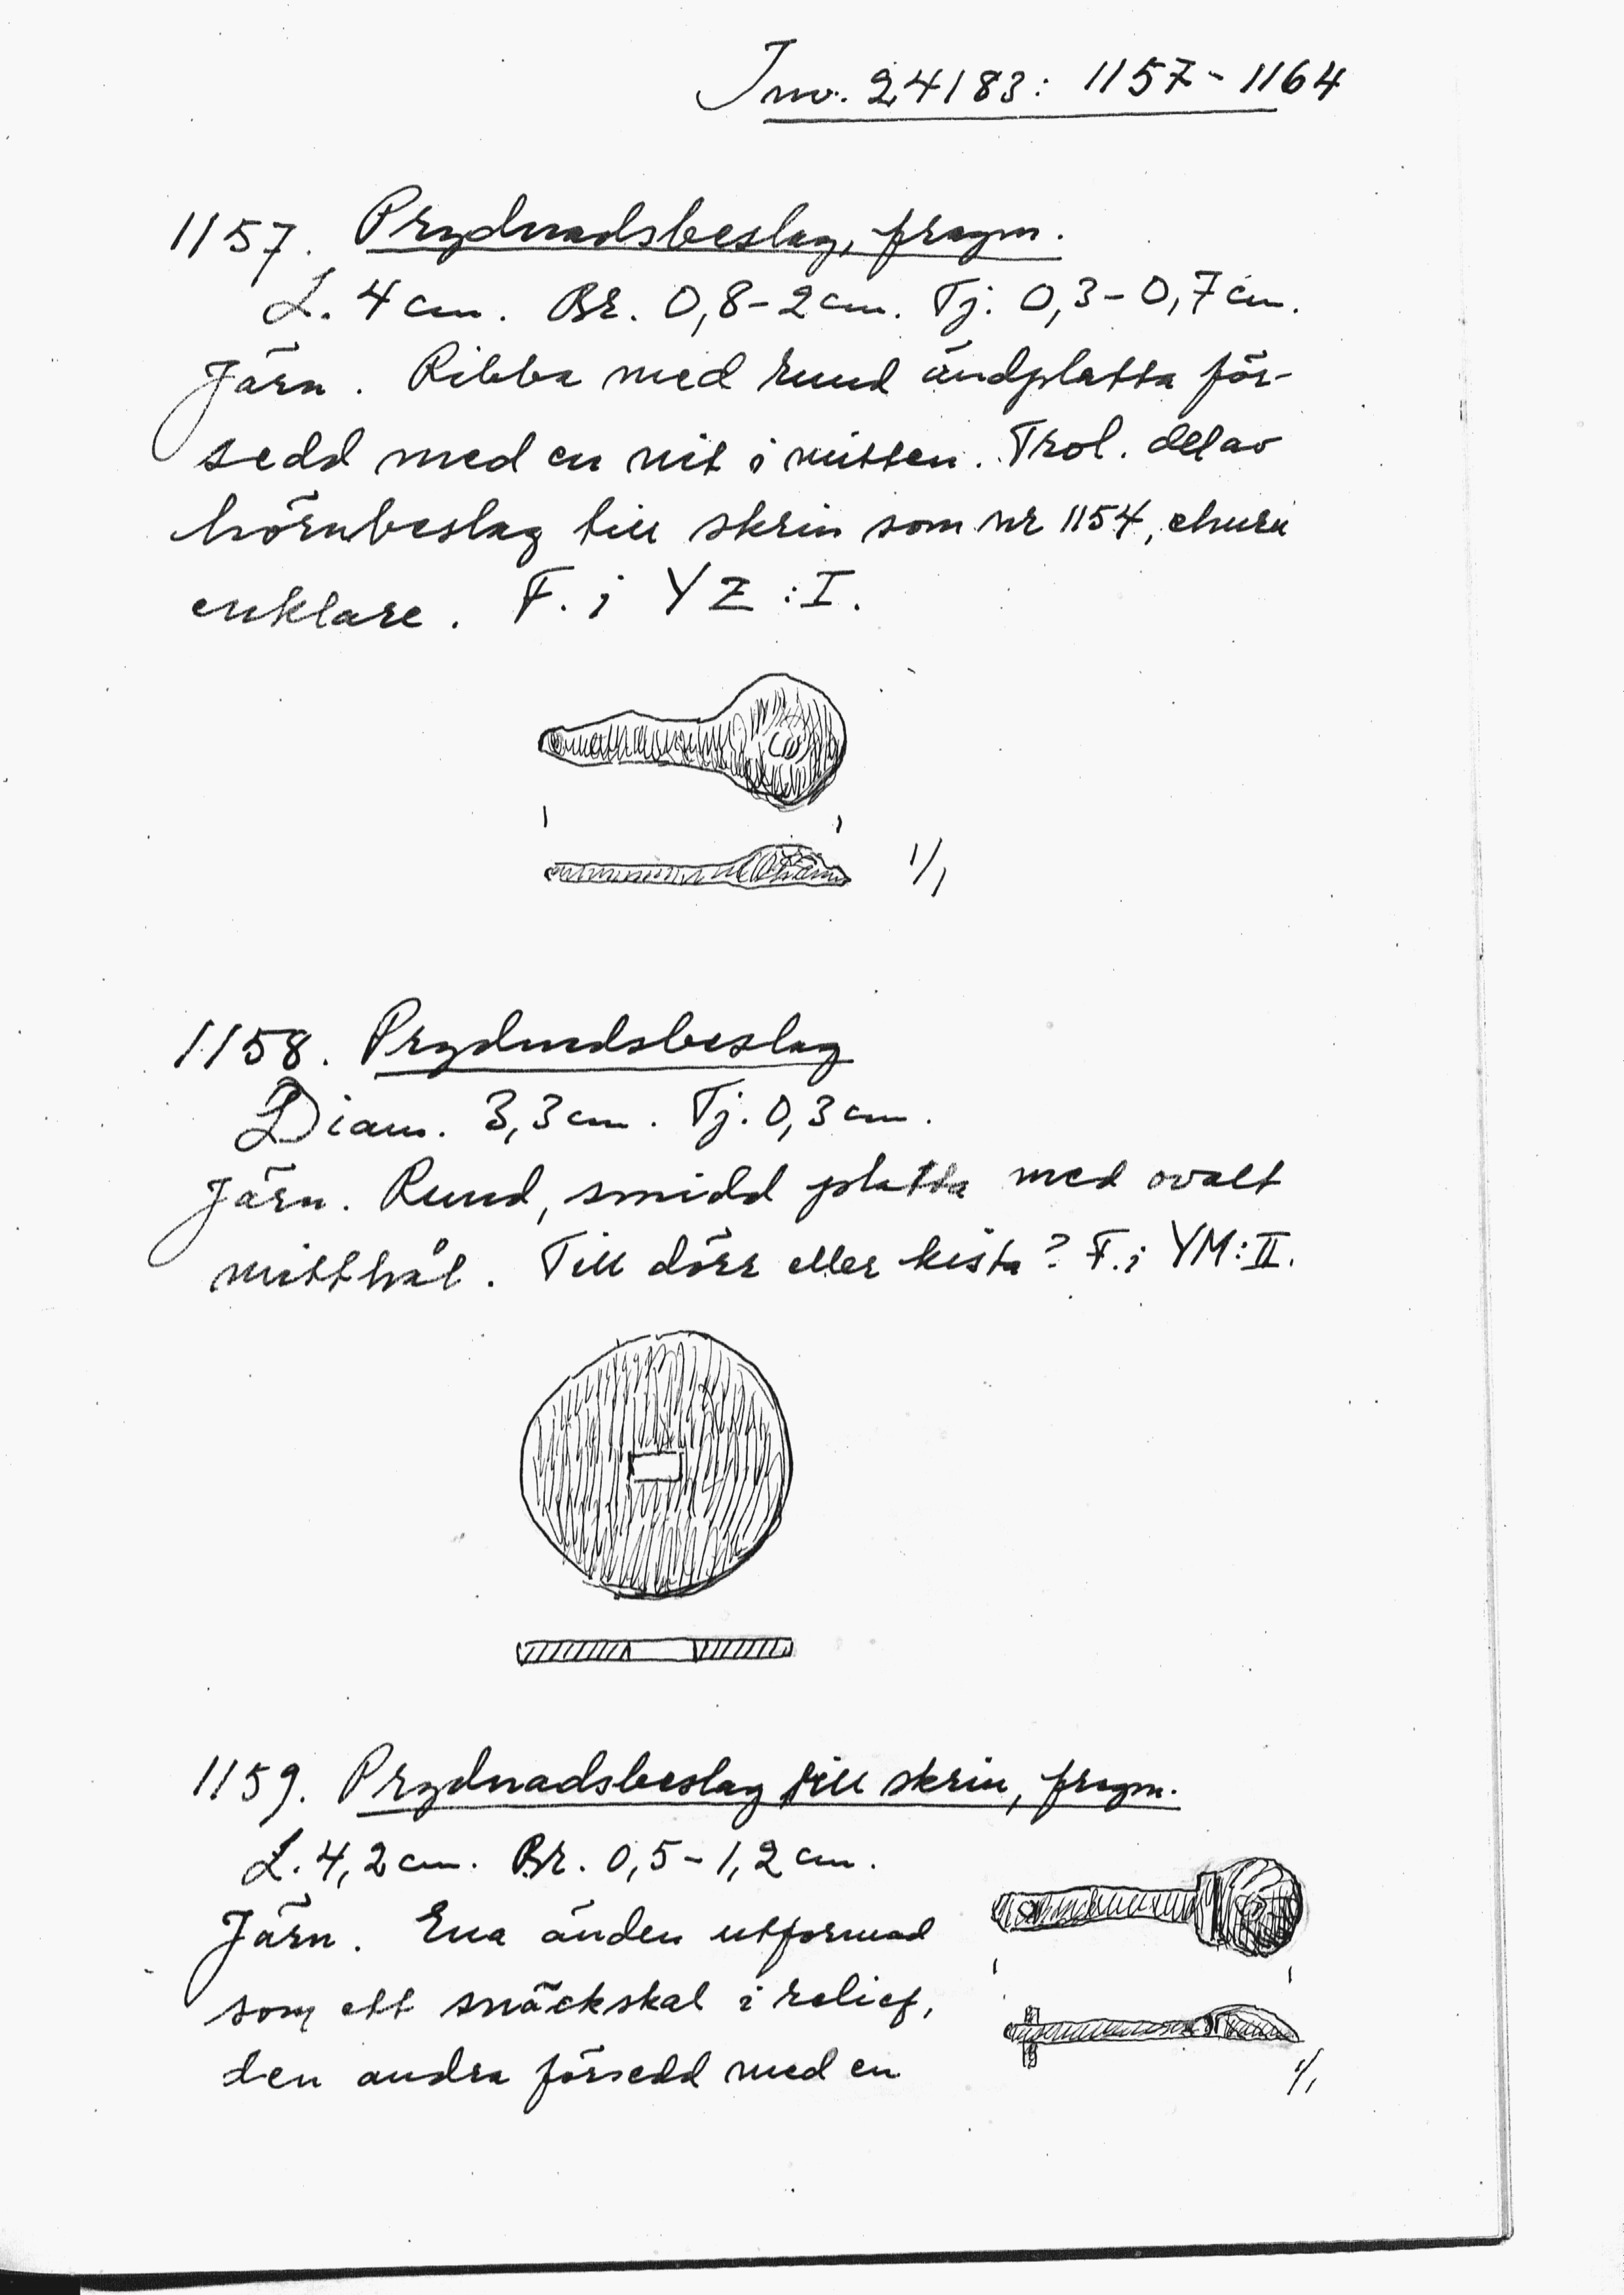 Inv. 24183: 1157-1164
1157. Prydnadsbeslag, fragm.
L. 4 cm. Br. 0,8-2 cm. Tj. 0,3-0,7 cm.
Järn. Ribba med rund ändplatta för-
sedd med en nit i mitten. Trol. del av
hörnbeslag till skrin som nr 1154, ehuru
enklare. F. i YZ:I.
1/1
1158. Prydnadsbeslag
Diam. 3,3 cm. Tj. 0,3 cm.
Järn. Rund, smidd platta med ovalt
mitthål. Till dörr eller kista? F. i YM:II.
1159. Prydnadsbeslag till skrin, fragm.
L. 4,2 cm. Br. 0,5-1,2 cm.
Järn. Ena änden utformad
som ett snäckskal i relief,
den andra försedd med en
1/1